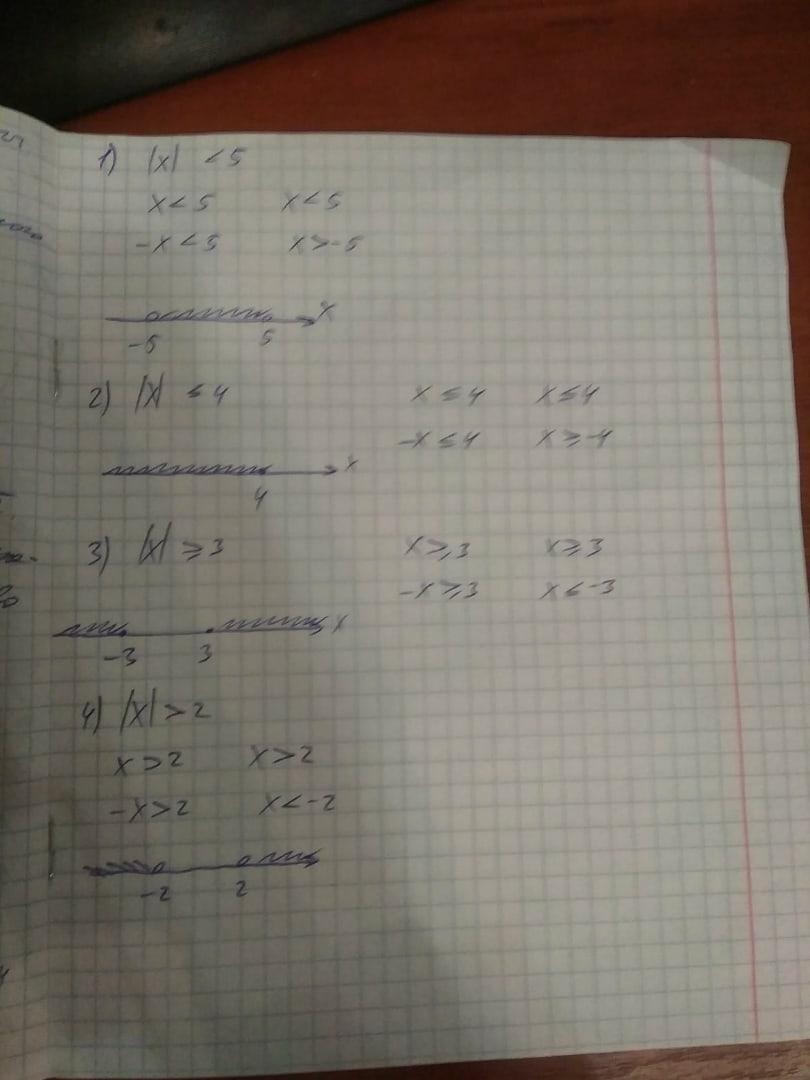 1) |x| < 5
x < 5 x < 5
-x < 5 x > -5
x
-5 5
2) |x| ≤ 4 x ≤ 4 x ≤ 4
-x ≤ 4 x ≥ -4
x
4
3) |x| ≥ 3 x ≥ 3 x ≥ 3
-x ≥ 3 x ≤ -3
x
-3 3
4) |x| > 2
x > 2 x > 2
-x > 2 x < -2
-2 2